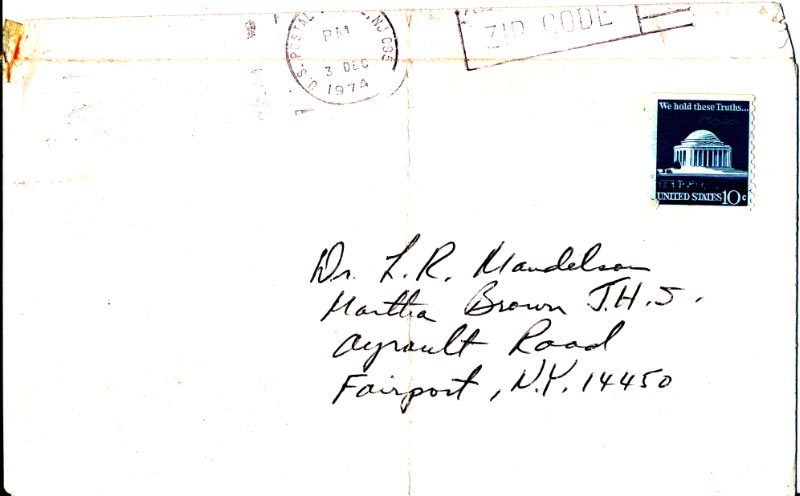 U.S. POSTAL NJ 085
PM
3 DEC
1974
ZIP CODE
We hold these Truths...
UNITED STATES 10c
Dr. L.R. Mandelson
Martha Brown J.H.S.
Ayrault Road
Fairport, N.Y. 14450